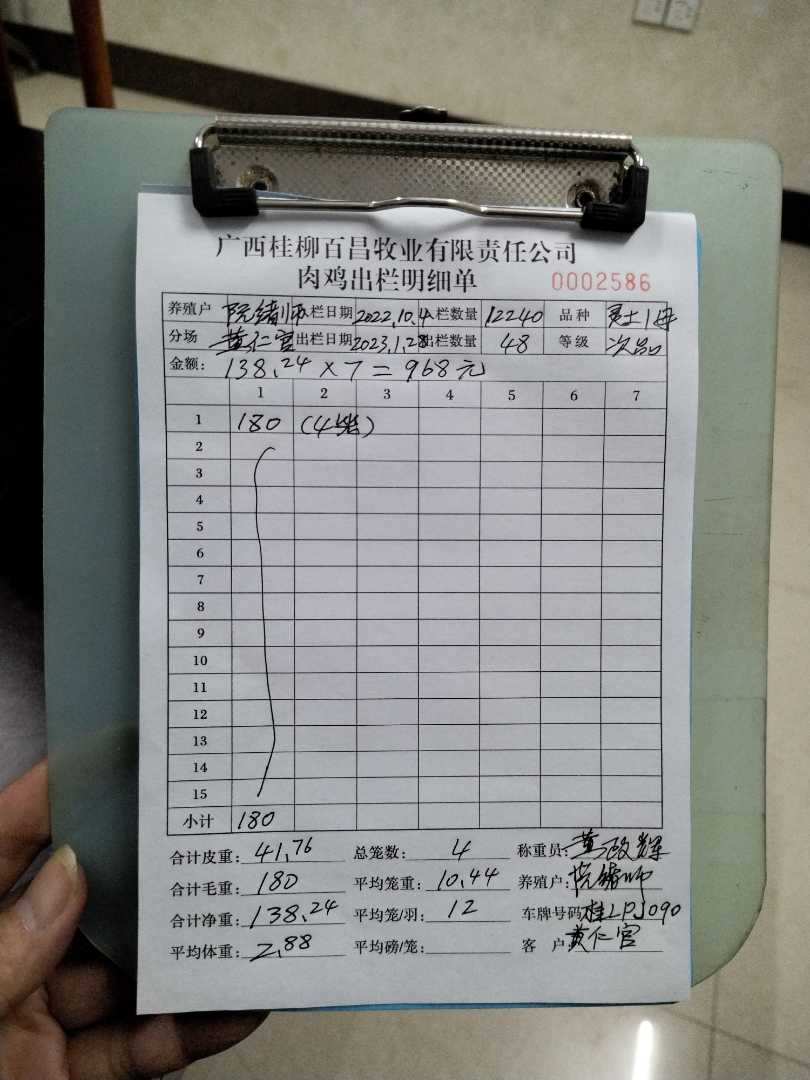 广西桂柳百昌牧业有限责任公司
肉鸡出栏明细单 0002586
养殖户 阮绪师 入栏日期 2022.10.4 入栏数量 12240 品种
分场 黄仁官 出栏日期 2023.1.28 出栏数量 48 等级 次品
金额: 138.24×7=968元
1 2 3 4 5 6 7
1 180 (4笼)
2
3
4
5
6
7
8
9
10
11
12
13
14
15
小计 180
合计皮重: 41.76 总笼数: 4 称重员: 黄政辉
合计毛重: 180 平均笼重: 10.44 养殖户: 阮绪师
合计净重: 138.24 平均笼/羽: 12 车牌号码 桂LPJ090
平均体重: 2.88 平均磅/笼: 客 户 黄仁官